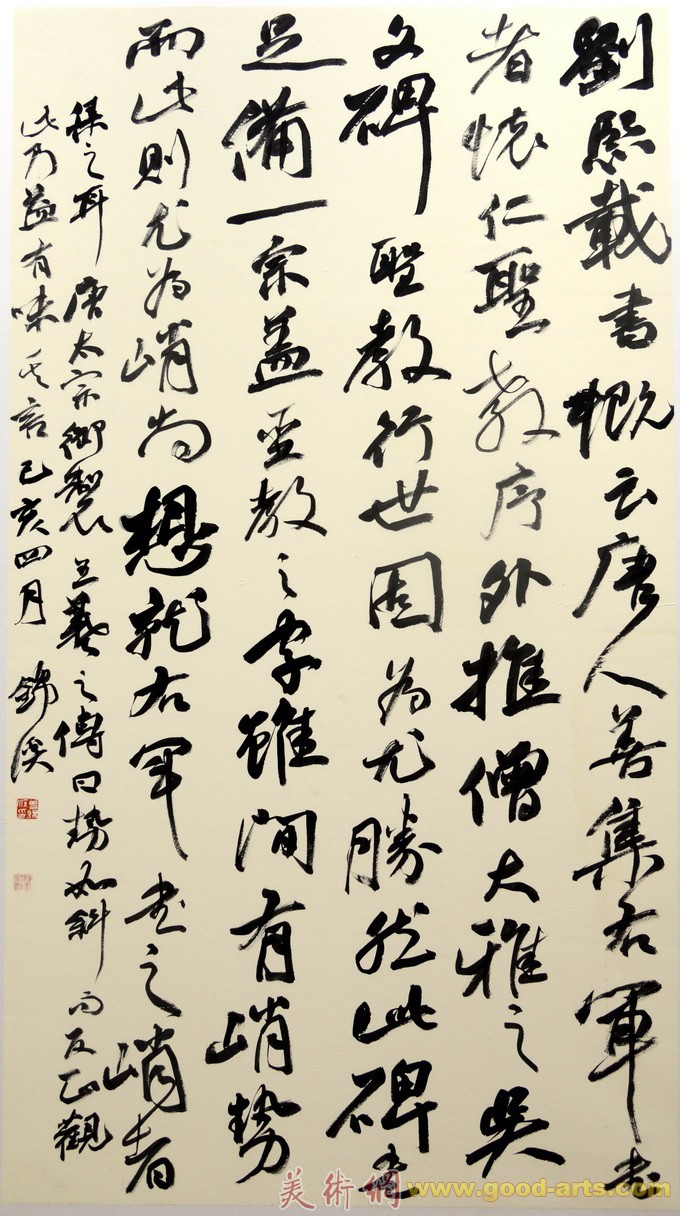 劉熙載書概云唐人善集右軍書
者懷仁聖教序外推僧大雅之吳
文碑聖教行世固為尤勝然此碑
足備一宗蓋聖教之字雖間有峭勢
而此則尤為峭尚想就右軍書之峭者
集之耳唐太宗御製王羲之傳曰勢如斜而反正觀
此乃益有味其言己亥四月錦溪
美術網 www.good-arts.com